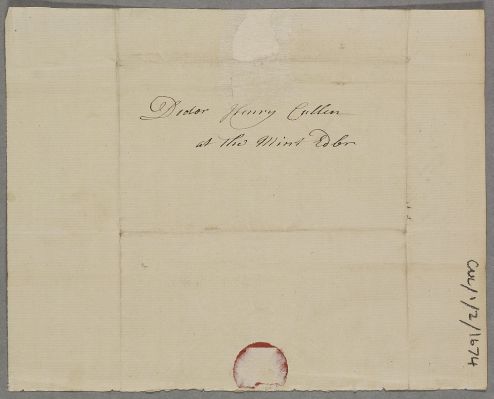 Doctor Henry Cullen
at the Mint Edbr
CUL/1/2/1674